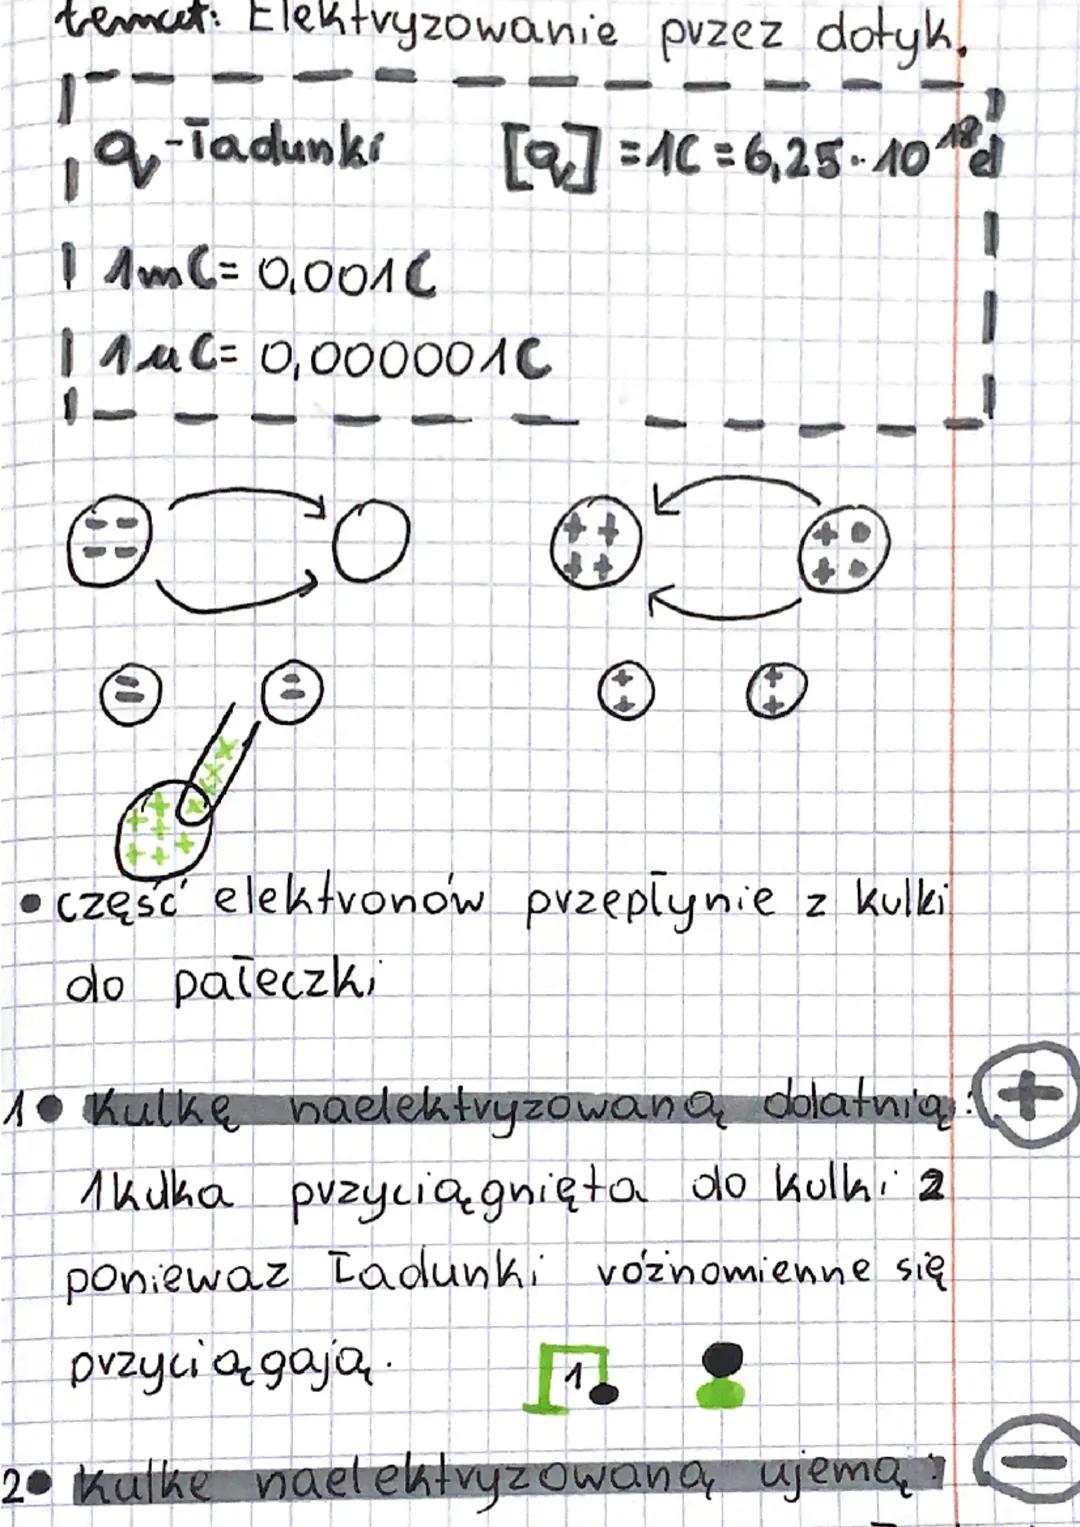 temat: Elektryzowanie przez dotyk.
q - ładunki [q] = 1C = 6,25 · 10¹⁸ el
1mC = 0,001C
1μC = 0,000001C
• część elektronów przepłynie z kulki
do pałeczki
1• Kulkę naelektryzowaną dolatnią: +
1 kulka przyciągnięta do kulki 2
poniewaz ładunki różnomienne się
przyciągają.
1
2• Kulke naelektryzowaną ujemą: −